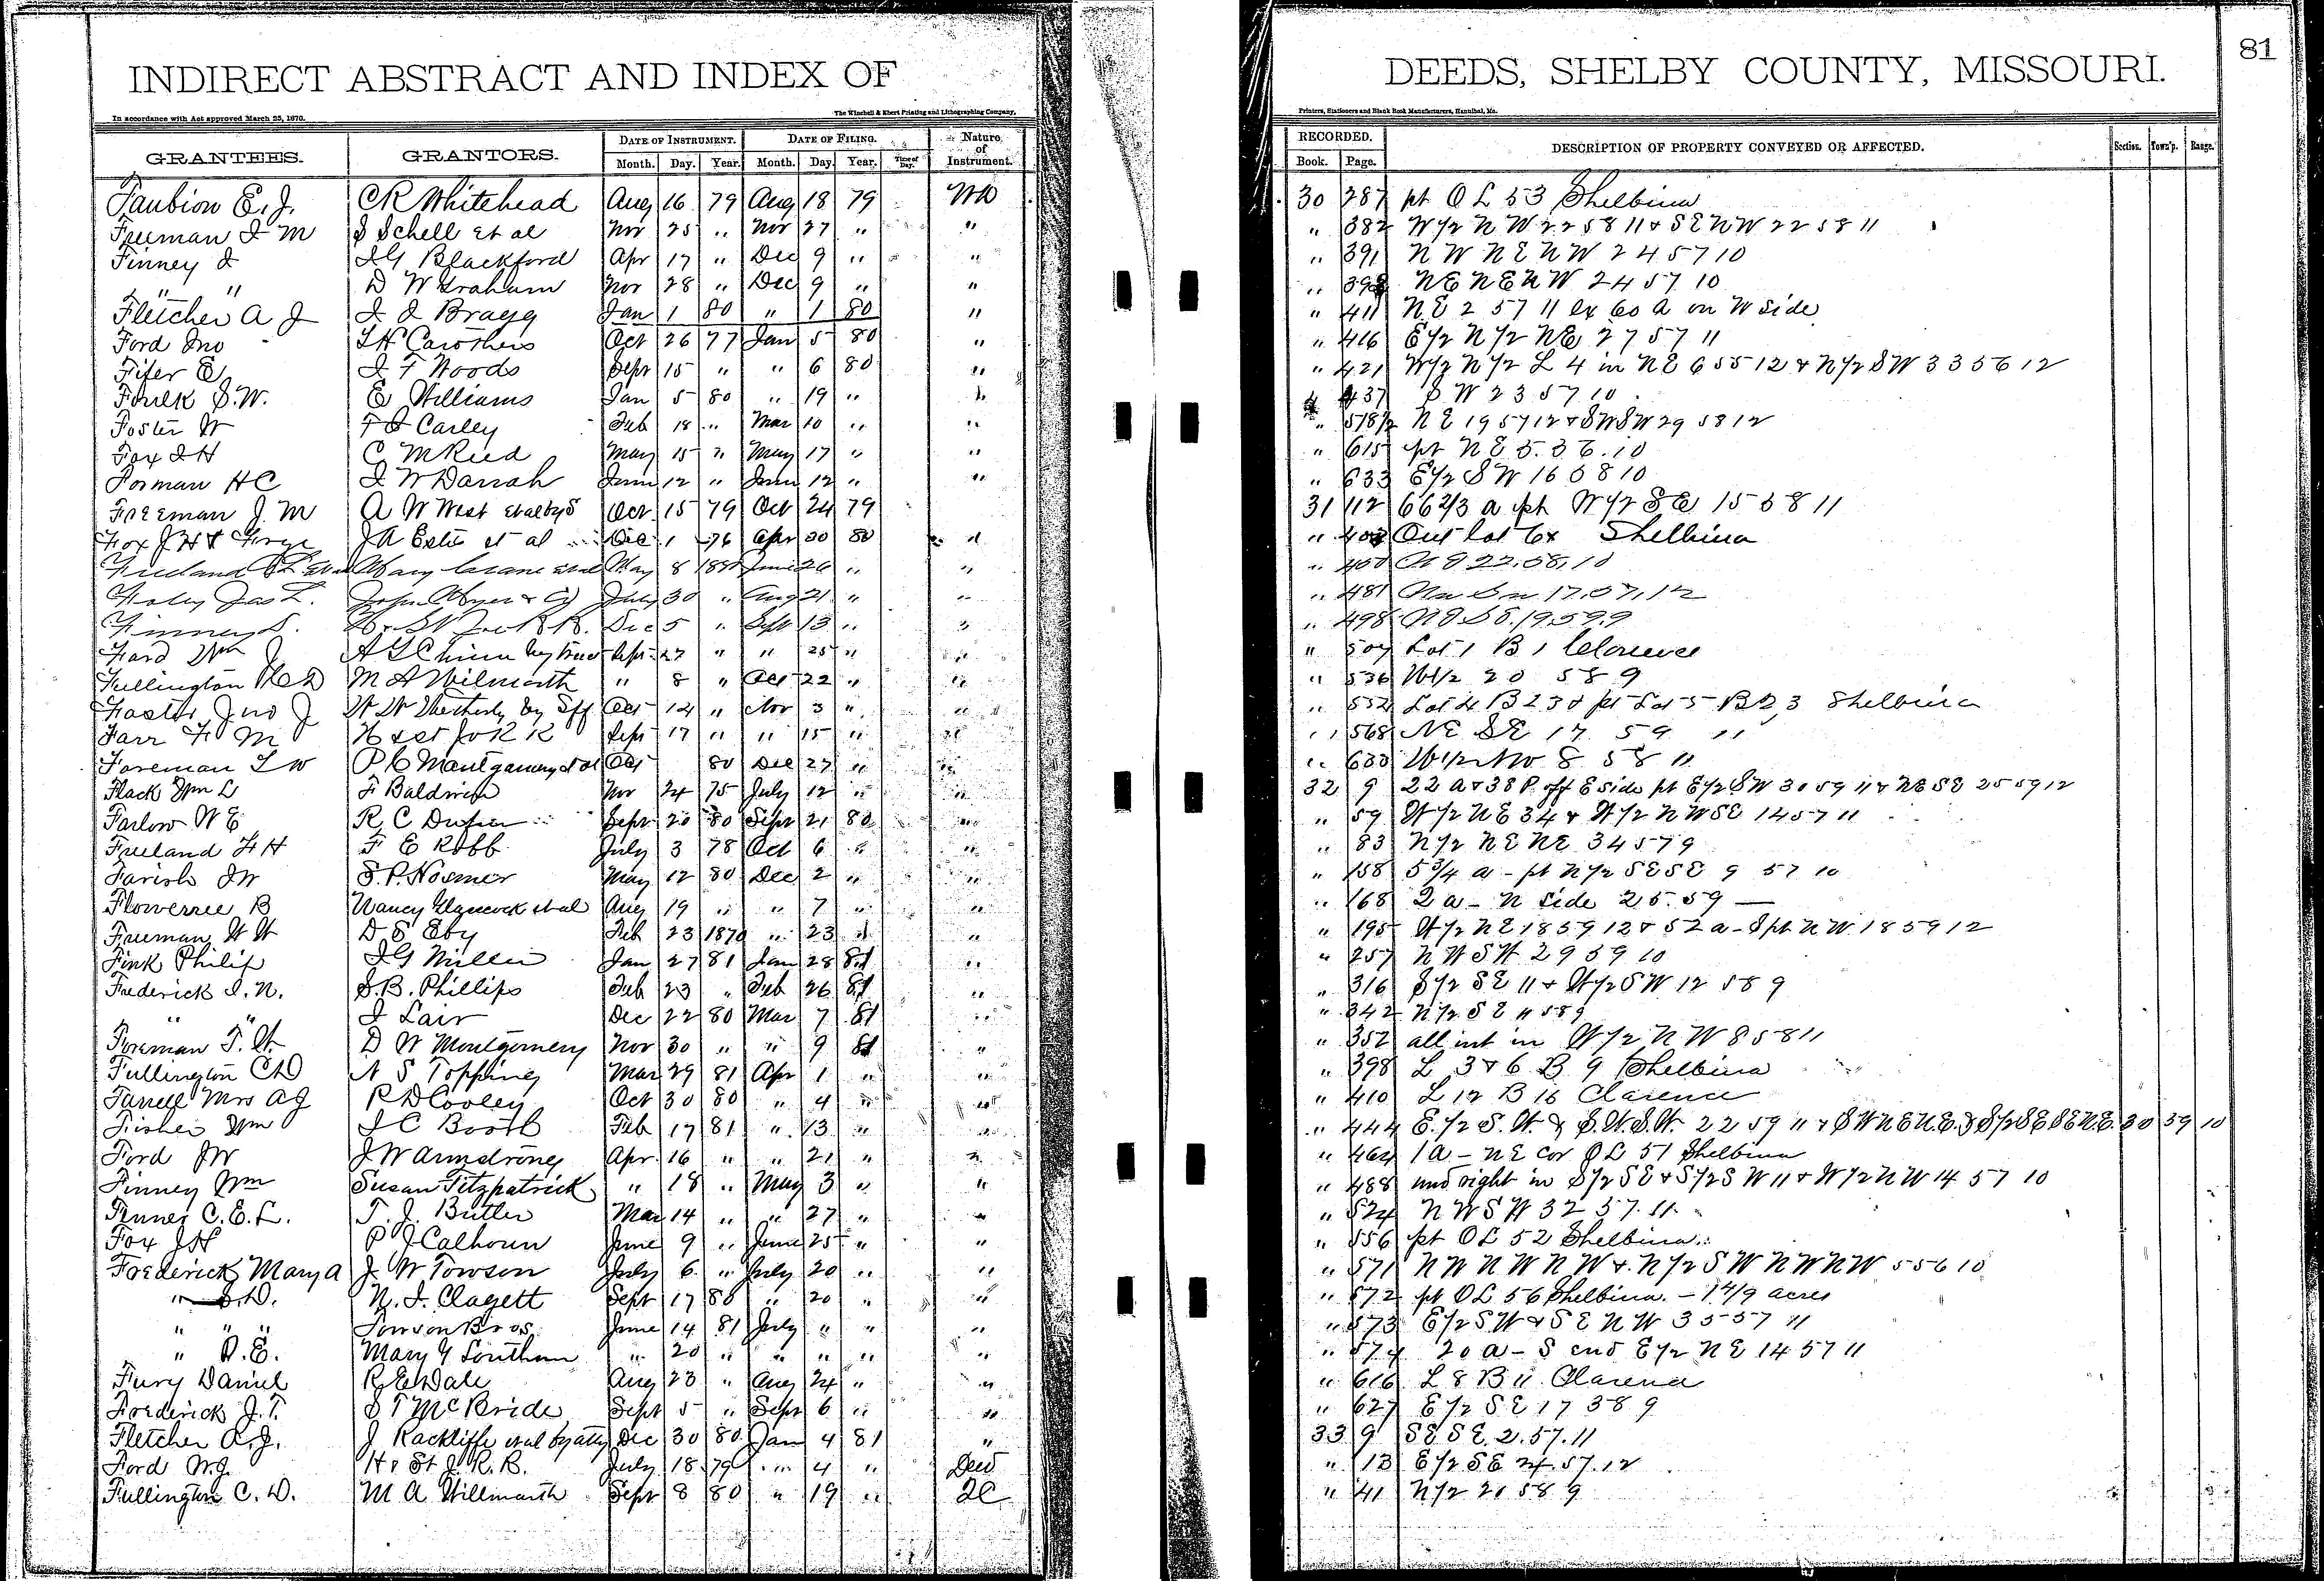 81
INDIRECT ABSTRACT AND INDEX OF DEEDS, SHELBY COUNTY, MISSOURI.
In accordance with Act approved March 25, 1870. The Winchell & Ebert Printing and Lithographing Company, Printers, Stationers and Blank Book Manufacturers, Hannibal, Mo.
GRANTEES. GRANTORS. DATE OF INSTRUMENT. DATE OF FILING. Nature of Instrument. RECORDED. DESCRIPTION OF PROPERTY CONVEYED OR AFFECTED. Section. Town'p. Range.
Month. Day. Year. Month. Day. Year. Time of Day. Book. Page.
Faubion E. J. C R Whitehead Aug 16 79 Aug 18 79 WD 30 287 pt O L 53 Shelbina
Freeman J M S Schell et al Nov 25 " Nov 27 " " " 382 W 1/2 N W 22 58 11 & S E N W 22 58 11
Finney J J G Blackford Apr 17 " Dec 9 " " " 391 N W N E N W 24 57 10
" " D W Graham Nov 28 " Dec 9 " " " N E N E N W 24 57 10
Fletcher A J J J Bragg Jan 1 80 " 1 80 " " 411 N E 2 57 11 ex 60 a on W side
Ford Jno Carothers Oct 26 77 Jan 5 80 " " 416 E 1/2 N 1/2 NE 27 57 11
Fifer E J F Woods Sept 15 " " 6 80 " " 421 W 1/2 N 1/2 L 4 in N E 6 55 12 & N 1/2 S W 33 56 12
Foulk S. W. E Williams Jan 5 80 " 19 " " " 437 S W 23 57 10
Foster W F J Carley Feb 18 " Mar 10 " " " 578 1/2 N E 19 57 12 & S W S W 29 58 12
Fox J H C M Reed May 15 " May 17 " " " 615 pt N E 5. 56. 10
Forman H C J W Darrah June 12 " June 12 " " " 633 E 1/2 S W 16 58 10
Freeman J. M A W West et al by S Oct 15 79 Oct 24 79 31 112 66 2/3 a pt W 1/2 S E 15 58 11
Fox J H & J A Estes et al Dec 1 76 Apr 30 80 " " Out lot 6x Shelbina
Freeland Mary Crane et al May 8 1880 June 26 " " " 450 22. 58. 10
Foley Jas L. John Moyer & Co July 30 " Aug 21 " " " 481 17. 57. 12
Finney S. H & St Joe R R. Dec 5 " Sept 13 " " " 498 N E S E. 19. 59. 9
Ford Wm J A G Chinn by Sept 27 " " 25 " " " 507 Lot 1 B 1 Clarence
Fullington C D M A Wilmarth " 8 " Oct 22 " " " 536 W 1/2 20 58 9
Foster Jno J W W Weatherby by Sff Oct 14 " Nov 3 " " " 552 Lot 4 B 23 & pt Lot 5 B 23 Shelbina
Farr F M H & St Jo R R Sept 17 " " 15 " " " 568 NE SE 17 59 11
Foreman T W P C Montgomery et al Oct 80 Dec 27 " " " 630 W 1/2 NW 8 58 11
Flack Wm L F Baldwin Nov 24 75 July 12 " " 32 9 22 a & 38 P. off E side pt E 1/2 S W 30 59 11 & NE SE 25 59 12
Farlow W E R. C Dufer Sept 20 80 Sept 21 80 " " 59 W 1/2 N E 34 & W 1/2 N W SE 14 57 11
Freeland F H F E Robb July 3 78 Oct 6 " " " 83 N 1/2 N E NE 34 57 9
Farish J W S. P. Hosmer May 12 80 Dec 2 " " " 158 5 3/4 a - pt N 1/2 S E S E 9 57 10
Flowerree B Nancy Glascock et al Aug 19 " " 7 " " " 168 2 a - N side 25. 59 —
Freeman W W D S Eby Feb 23 1870 " 23 " " " 195 W 1/2 N E 18 59 12 & 52 a - S pt N W. 18 59 12
Fink Philip J G Miller Jan 27 81 Jan 28 81 " " 257 N W S W 29 59 10
Frederick J. N. S. B. Phillips Feb 23 " Feb 26 81 " " 316 S 1/2 S E 11 & W 1/2 S W 12 58 9
" " J Lair Dec 22 80 Mar 7 81 " " 342 N 1/2 S E 11 58 9
Foreman T. W. D W Montgomery Nov 30 " " 9 81 " " 352 all int in W 1/2 N W 8 58 11
Fullington C D N S Topping Mar 29 81 Apr 1 " " " 398 L 3 & 6 B 9 Shelbina
Farrell Mrs A J R D Cooley Oct 30 80 " 4 " " " 410 L 12 B 16 Clarence
Fisher Wm J C Booth Feb 17 81 " 13 " " " 444 E. 1/2 S. W. & S. W. S. W. 22 59 11 & S W N E N. E. & S 1/2 S E S E N. E. 30 59 10
Ford J W J. W Armstrong Apr. 16 " " 21 " " " 464 1 a - N E cor O L 51 Shelbina
Finney Wm Susan Fitzpatrick " 18 " May 3 " " " 488 und right in S 1/2 S E & S 1/2 S W 11 & W 1/2 N W 14 57 10
Finney C. E. L. T. J. Butler Mar 14 " " 27 " " " 524 N W S W 32 57. 11.
Fox J H P J Calhoun June 9 " June 25 " " " 556 pt O L 52 Shelbina
Frederick Mary A J. W Towson July 6 " July 20 " " " 571 N W N W N W & N 1/2 S W N W N W 5 56 10
" S. D. N. J. Clagett Sept 17 80 " 20 " " " 572 pt O L 56 Shelbina - 1 4/9 acres
" " " Towson Bros. June 14 81 July " " " " 573 E 1/2 S W & S E N W 35 57 11
" D. E. Mary Y Southern " 20 " " " " " " 574 20 a - S end E 1/2 N E 14 57 11
Fury Daniel R. E. Dale Aug 23 " Aug 24 " " " 616 L 8 B 11 Clarence
Frederick J. T. S T McBride Sept 5 " Sept 6 " " " 627 E 1/2 S E 17 58 9
Fletcher A. J. J Rackliffe et al by atty Dec 30 80 Jan 4 81 " 33 9 S E S E. 2. 57. 11
Ford W. J. H & St J. R. R. July 18 79 " 4 " Deed " 13 E 1/2 S E 24. 57. 12
Fullington C. D. M A Willmarth Sept 8 80 " 19 " QC " 41 N 1/2 20 58 9